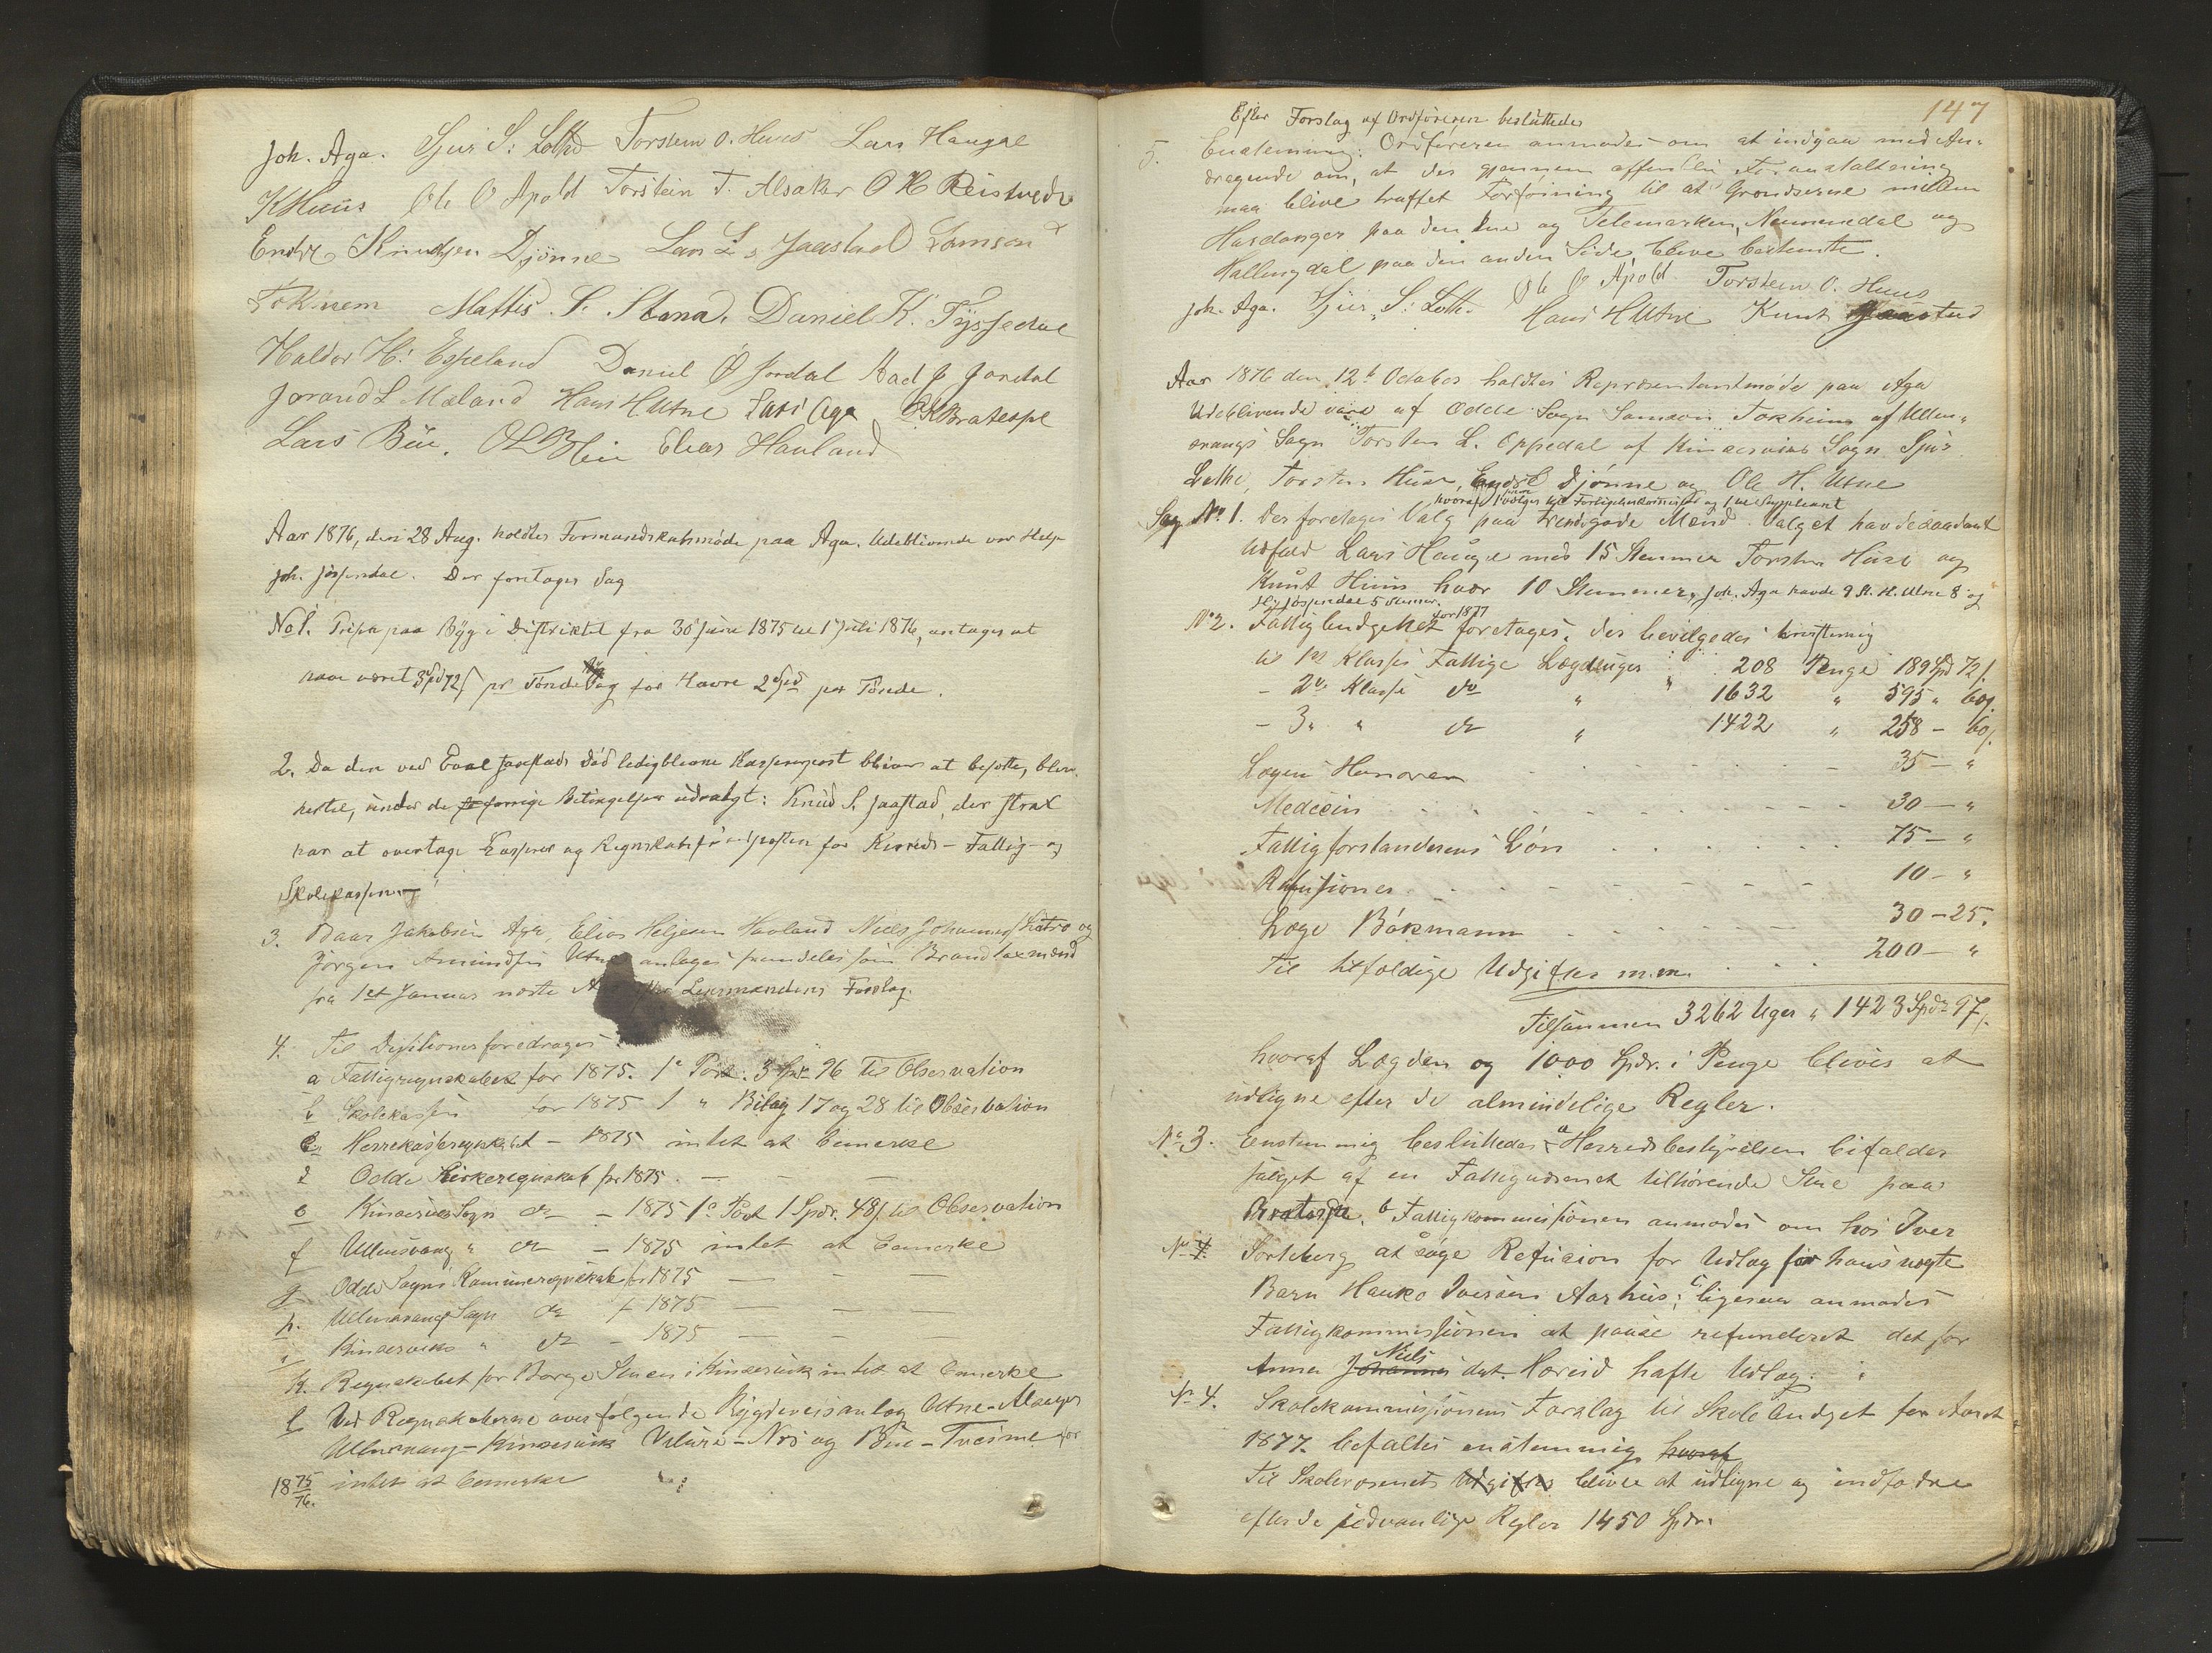 Joh. Aga. Sjur S: Lothe Torstein O. Huus Lars Haugse
K Huus Ole O Apold Torstein T. Alsaker O H Reisæter
Endre Knudsen Djönne Lars L. Jaastad Samson
Tokheim Mattis. S. Stana. Daniel K. Tyssedal
Haldor H: Espeland Daniel O Jordal Aad J Jordal
Jorand L Mæland Hans H Utne Lars Aga K Bratespe
Lars Büe. O L Bleie Elias Hauland
Aar 1876, den 28 Aug. holdtes Formandskabsmöde paa Aga. Udeblivende var Helje
Joh. Jösendal. Der foretages Sag
No 1. Prisen paa Byg i Distriktet fra 30 Juni 1875 til 1 Juli 1876, antages at
have været 3 Spd 72 s pr Tönde og for Havre 2 Spd pr Tönde.
2. Da den ved Jaastads Död ledigblevne Kassererpost bliver at besætte, blev
hertil, under de forrige Betingelser udvalgt: Knud S. Jaastad, der strax
har at overtage Kasserer og Regnskabsförerposten for Herreds- Fattig- og
Skolekassen.
3. Baar Jakobsen Aga, Elias Heljesen Hovland Niels Johannes og
Jörgen Amundsen Utne antages fremdeles som Brandtaxmænd
fra 1ste Januar næste Lensmandens Forslag.
4. Til Desitionsforedrages
a Fattigregnskabet for 1875. 1e Post. 3 Spd 96 til Observation
b Skolekassen for 1875 1 " Bilag 17 og 28 til Observation
c Herredskasseregnskabet - 1875 intet at bemerke
d Odde Kirkeregnskab for 1875 - - -
e Kinservik Sogn do - 1875 1e Post 1 Spdr. 48 s til Observation
f Ullensvang " do - 1875 intet at bemerke
g Odde Sogns Kommuneregnskab for 1875 - - -
h. Ullensvang Sogn do f 1875 - - -
i Kinserviks " do - 1875 - - -
k. Regnskabet for Borge Stuen i Kinservik intet at bemerke
l Ved Regnskaberne over følgende Bygdeveisanlæg Utne-Alsager
Ullensvang-Kinservik Velure-Næs og Büe-Tveisme for
18 75/76. intet at bemerke
147
Efter Forslag af Ordföreren besluttedes
5. Enstemmig: Ordföreren anmodes om at indgaa med An-
dragende om, at der gjennem offentlig Foranstaltning
maa blive truffet Forföining til at Grændserne mellem
Hardanger paa den ene og Telemarken, Nummedal og
Hallingdal paa den anden Side, blive bestemte.
Joh. Aga. Sjur S: Lothe Ole O Apold. Torstein O. Huus
Hans H Utne Knut Jaastad
Aar 1876 den 12te Octobor holdtes Repræsentantmöde paa Aga
Udeblivende vare af Odde Sogn Samson Tokheim af Ullens-
svangs Sogn Torsten L. Oppedal af Kinserviks Sogn Sjur
Lothe, Torsten Huse, Endre Djønne og Ole H. Utne
hvoraf 1 vælges til Forligelseskommissær og 1 til Suppleant
Sag No 1. Der foretages Valg paa trendegode Mænd. Valget havde saadant
Udfald Lars Hauge med 15 Stemmer Torsten Huse og
Knut Huus hver 10 Stemmer, Joh. Aga havde 9 St. H. Utne 8 og
H. Jösendal 5 Stemmer.
No 2. Fattigbudgettet for 1877 foretages. Der bevilgedes enstemmig
til 1ste Klasses Fattige Lægduger " 208 Penge 189 Spd 72 s.
- 2den Klasse do " " 1632 " 595 " 60 s.
- 3. " do " 1422 " 258 - 60 s.
Lægens Honorar . . . 35 - "
Medecin . . . 30 - "
Fattigforstanderens Lön . . . 75 - "
Refusioner . . . 10 - "
Læge Bökmann . . . 30 - 25.
Til tilfældige Udgifter m.m. . . . 200 - "
Tilsammen 3262 Uger " 1423 Spdr 97 s.
hvoraf Lægden og 1000 Spdr. i Penge blives at
udligne efter de almindelige Regler.
No 3. Enstemmig besluttedes a Herredsbestyrelsen bifalder
salget af en Fattigvæsenet tilhørende Stue paa
Bratespe. b Fattigkommissionen anmodes om hos Iver
No 4. Sorteberg at söge Refusion for Udlæg for hans uegte
Barn Hauko Iversen Aarhus; c ligesaa anmodes
Fattigkommissionen at paase refunderet det for
Anna Johannes Niels dat. Hæreid hafte Udlæg.
No 4. Skolekommissionens Forslag til Skolebudget for Aaret
1877. bifaltes enstemmig hvoraf
Til Skolevæsenets Udgifter bliver at udligne og indfodre
efter de sedvanlige Regler 1450 Spdr.